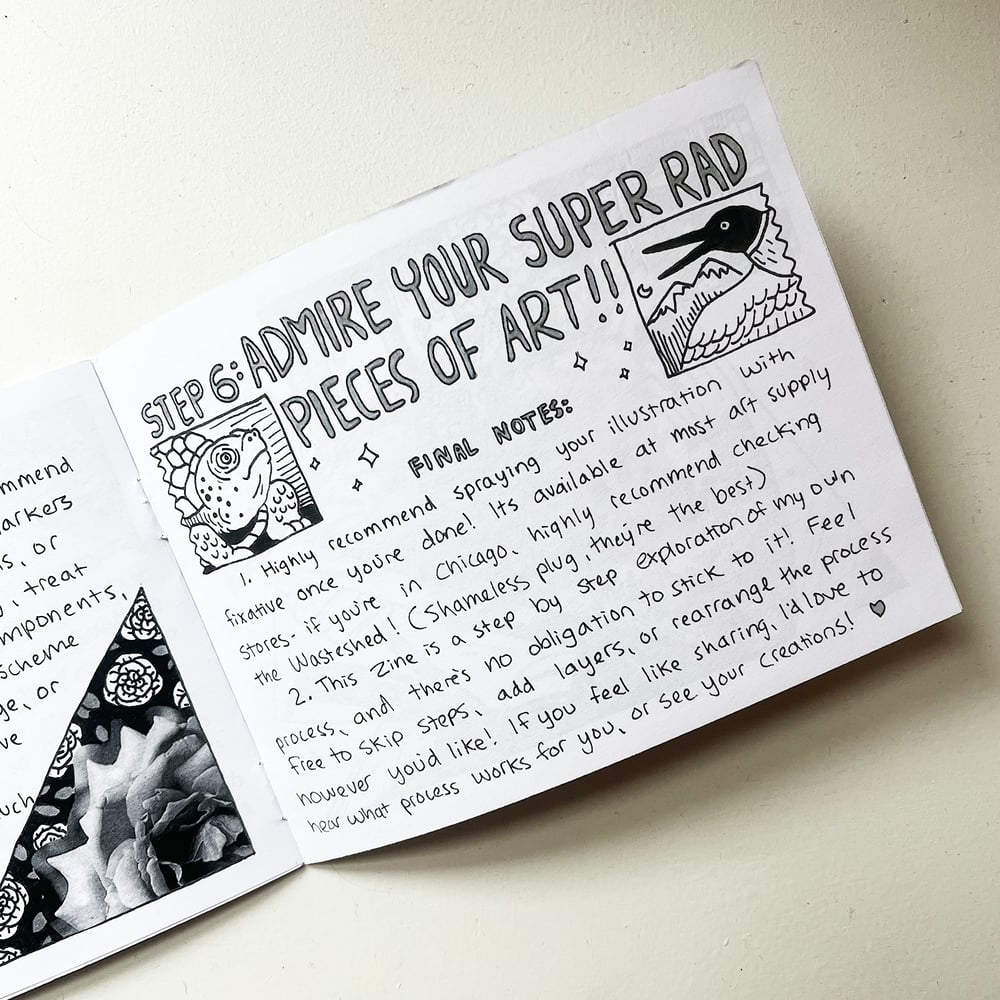 mmend
arkers
s, or
, treat
mponents,
scheme
ge, or
ve
uch
STEP 6: ADMIRE YOUR SUPER RAD
PIECES OF ART!!
FINAL NOTES:
1. Highly recommend spraying your illustration with
fixative once you're done! Its available at most art supply
stores- if you're in Chicago, highly recommend checking
the Wasteshed! (Shameless plug, they're the best)
2. This zine is a step by step exploration of my own
process, and there's no obligation to stick to it! Feel
free to skip steps, add layers, or rearrange the process
however you'd like! If you feel like sharing, I'd love to
hear what process works for you, or see your creations!